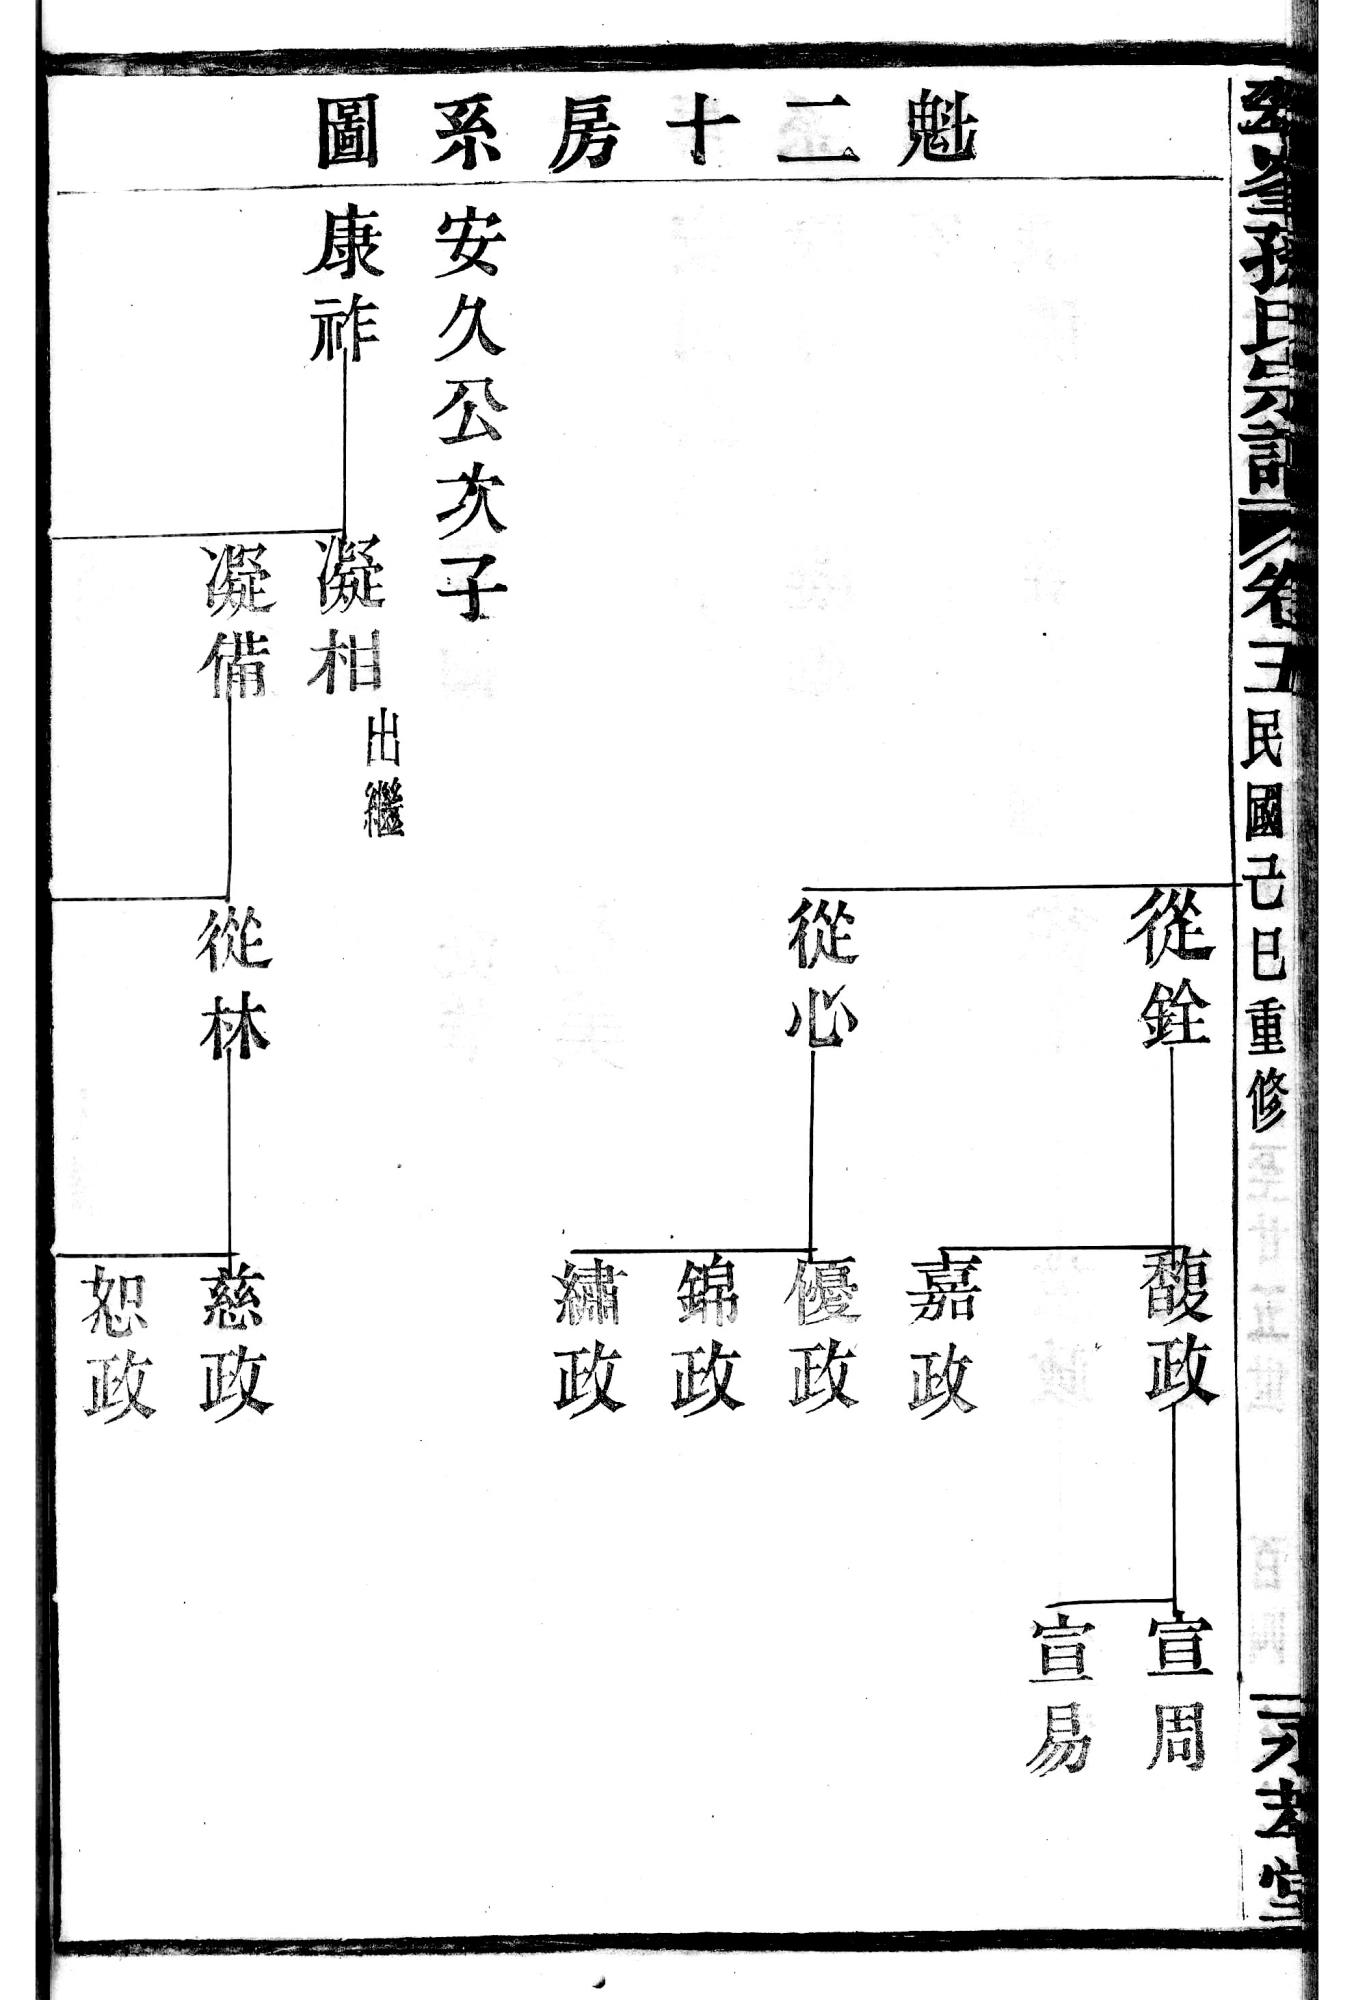 魁二十房系圖
孫氏宗譜
卷三
民國己巳重修
堂
從銓
馥政
宣周
宣易
嘉政
從心
優政
錦政
繡政
安久公次子
康祚
凝相
出繼
凝備
從林
慈政
恕政